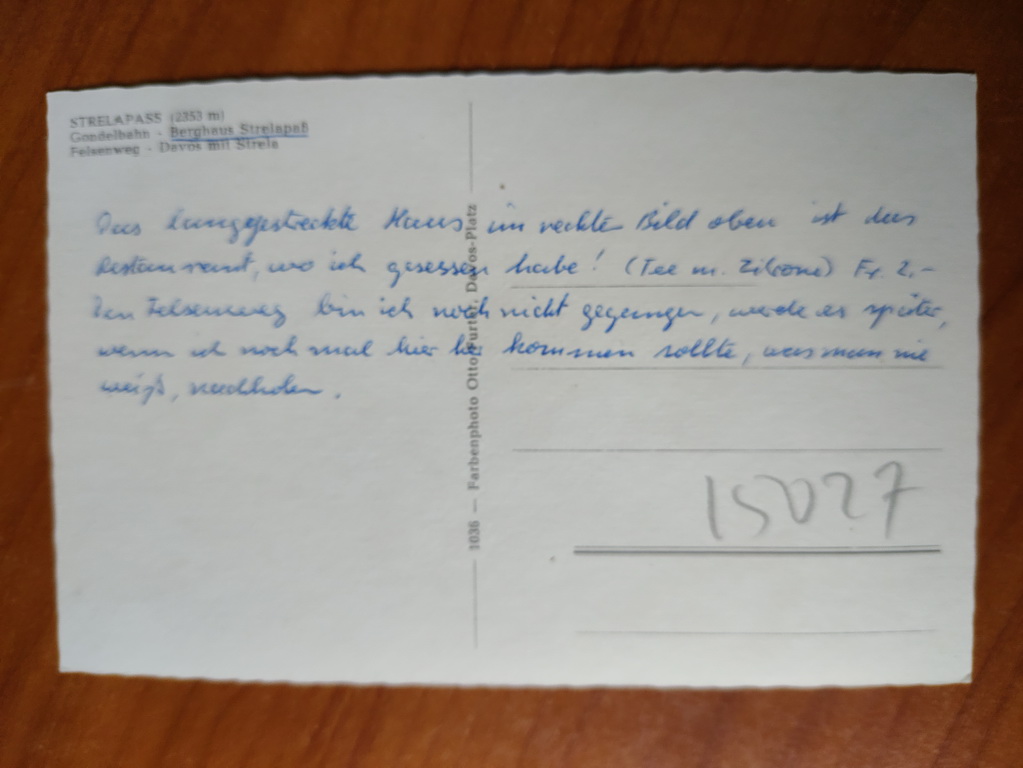 STRELAPASS (2353 m)
Gondelbahn - Berghaus Strelapaß
Felsenweg - Davos mit Strela
Das langgestreckte Haus im rechten Bild oben ist das
Restaurant, wo ich gesessen habe! (Tee m. Zitrone) Fr. 2.-
Den Felsenweg bin ich noch nicht gegangen, werde es später,
wenn ich noch mal hier her kommen sollte, was man nie
weiß, nachholen.
1036 — Farbenphoto Otto Furter, Davos-Platz
15027